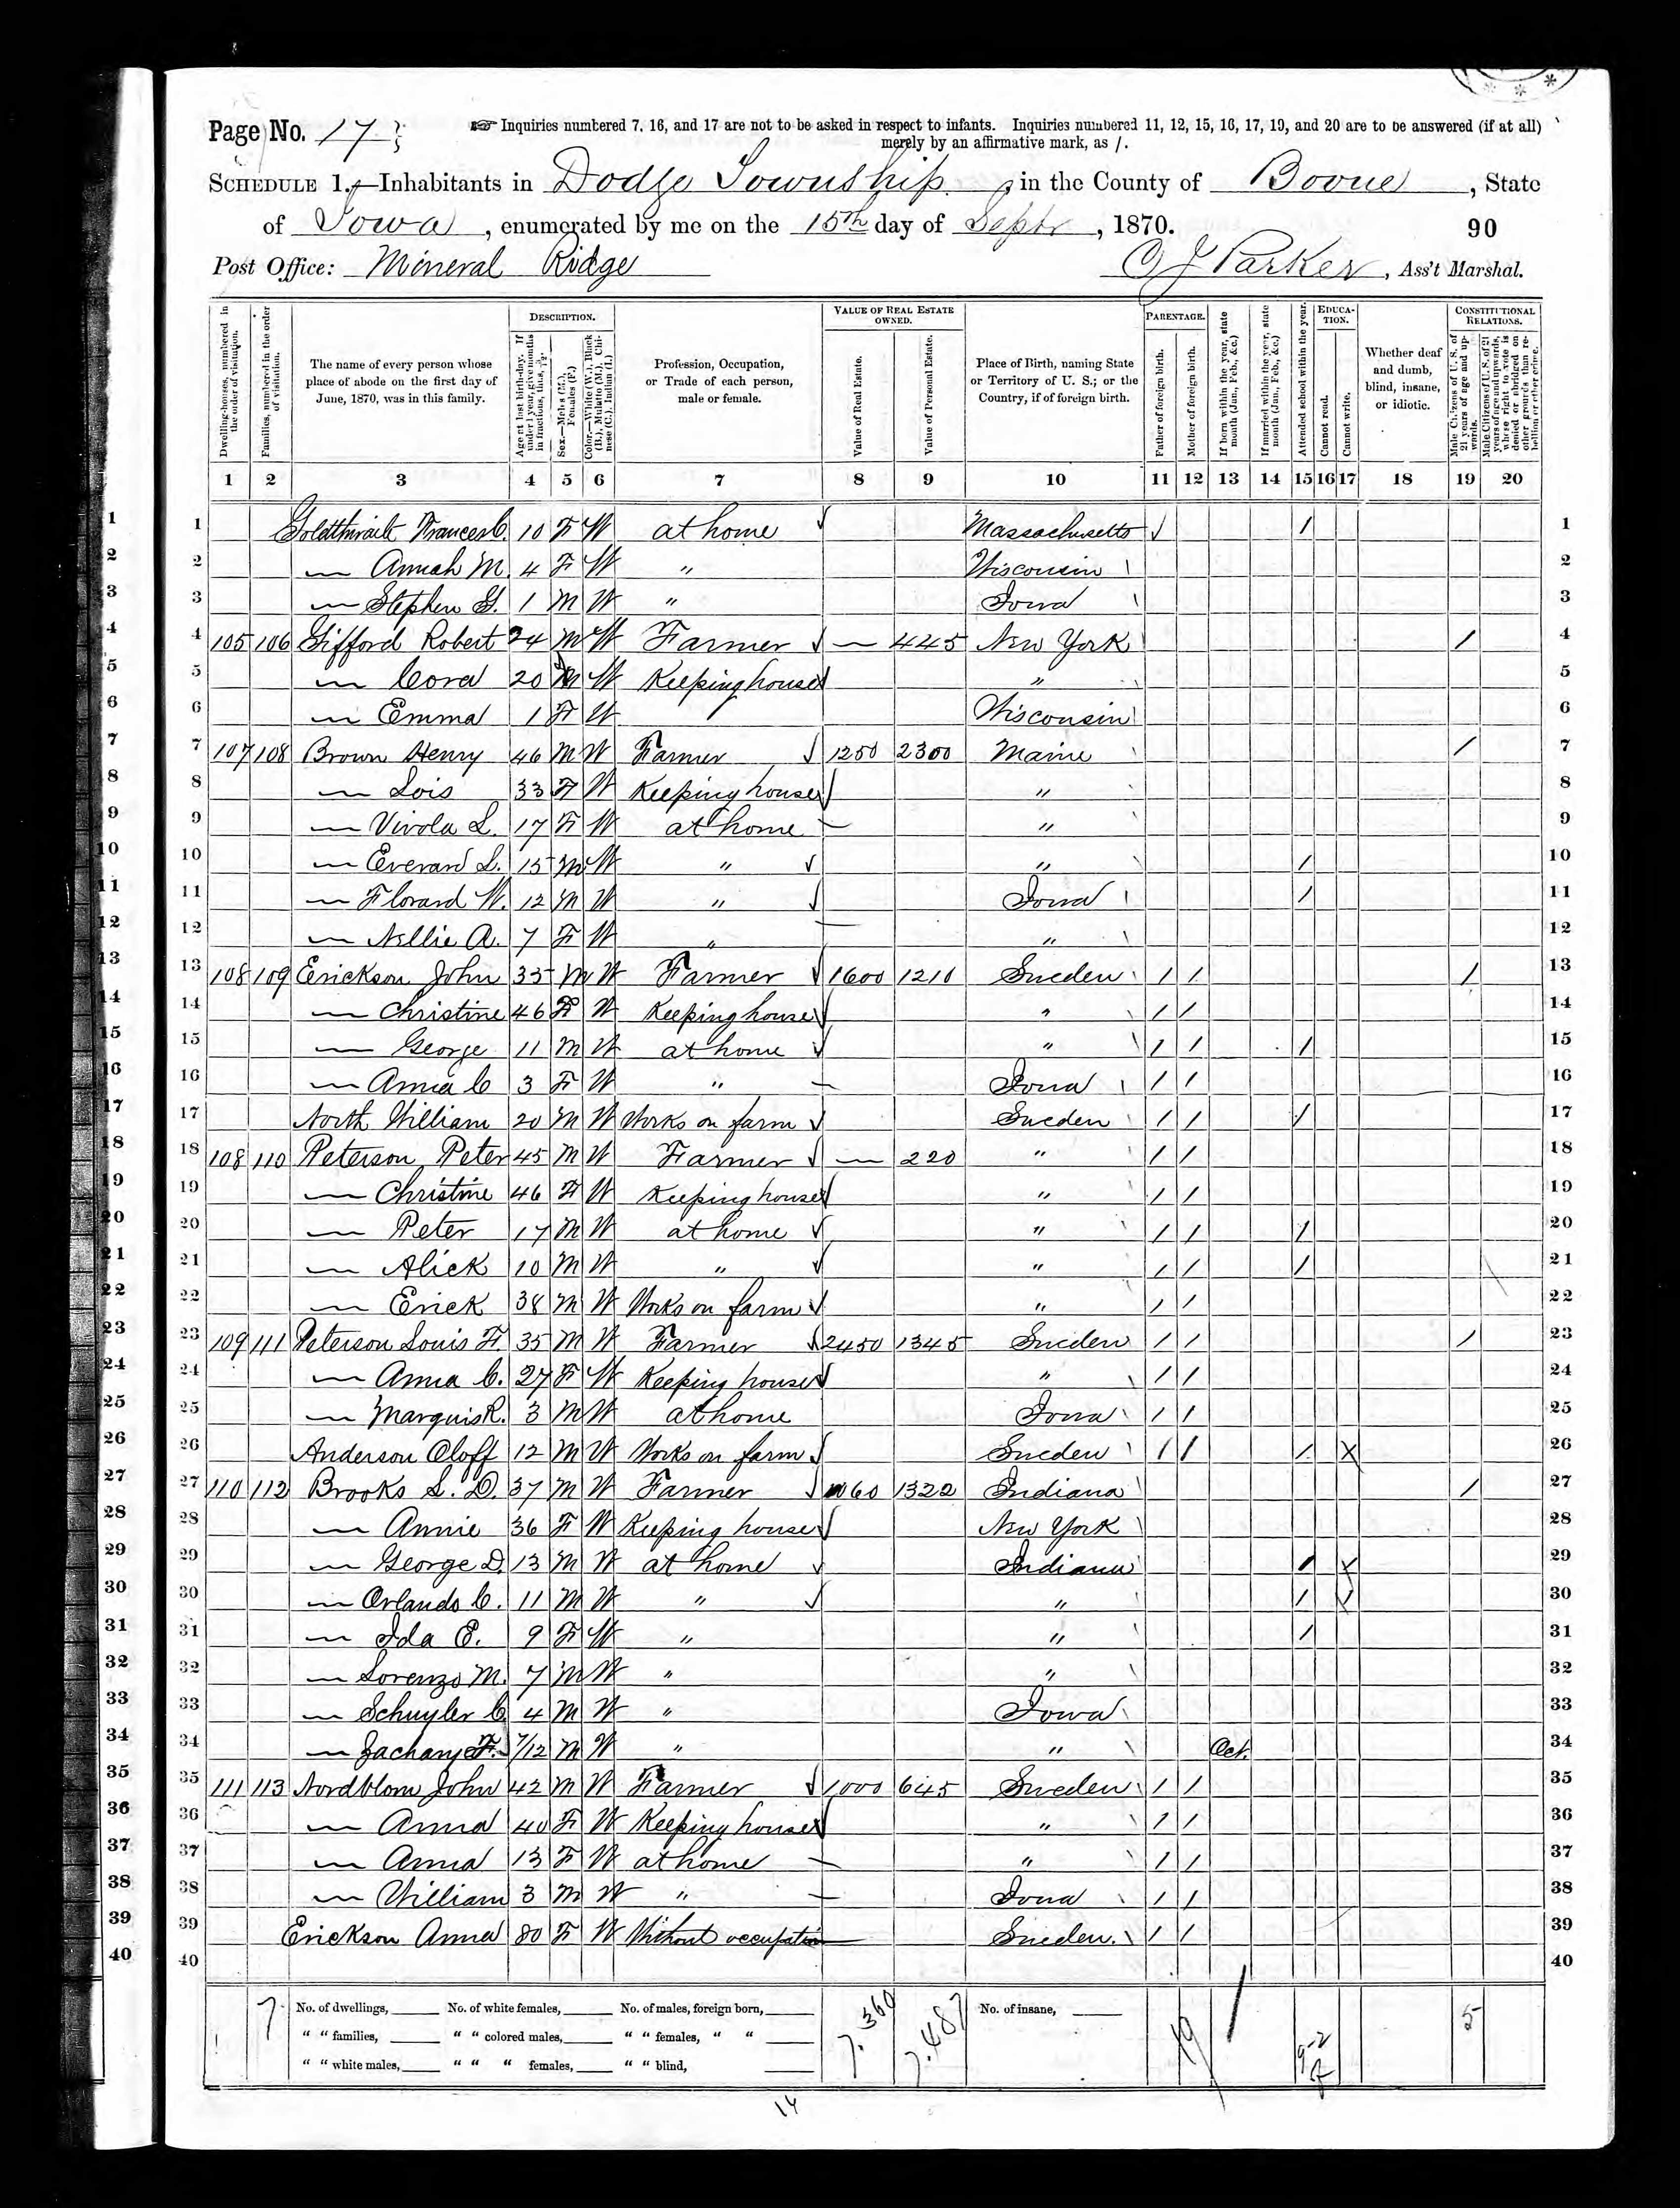 Page No. 17
☞ Inquiries numbered 7, 16, and 17 are not to be asked in respect to infants. Inquiries numbered 11, 12, 15, 16, 17, 19, and 20 are to be answered (if at all)
merely by an affirmative mark, as /.
SCHEDULE 1.—Inhabitants in Dodge Township, in the County of Boone, State
of Iowa, enumerated by me on the 15th day of Septr, 1870. 90
Post Office: Mineral Ridge C J Parker, Ass't Marshal.
Dwelling-houses, numbered in the order of visitation.
Families, numbered in the order of visitation.
The name of every person whose place of abode on the first day of June, 1870, was in this family.
DESCRIPTION.
Age at last birth-day. If under 1 year, give months in fractions, thus, 3/12.
Sex.—Males (M.), Females (F.)
Color.—White (W.), Black (B.), Mulatto (M.), Chinese (C.), Indian (I.)
Profession, Occupation, or Trade of each person, male or female.
VALUE OF REAL ESTATE OWNED.
Value of Real Estate.
Value of Personal Estate.
Place of Birth, naming State or Territory of U. S.; or the Country, if of foreign birth.
PARENTAGE.
Father of foreign birth.
Mother of foreign birth.
If born within the year, state month (Jan., Feb., &c.)
If married within the year, state month (Jan., Feb., &c.)
Attended school within the year.
EDUCATION.
Cannot read.
Cannot write.
Whether deaf and dumb, blind, insane, or idiotic.
CONSTITUTIONAL RELATIONS.
Male Citizens of U. S. of 21 years of age and upwards.
Male Citizens of U. S. of 21 years of age and upwards, whose right to vote is denied or abridged on other grounds than rebellion or other crime.
1 2 3 4 5 6 7 8 9 10 11 12 13 14 15 16 17 18 19 20
1 Goldthwaite Frances C. 10 F W at home Massachusetts / 1
2 — Annah M. 4 F W " Wisconsin 2
3 — Stephen G. 1 M W " Iowa 3
4 105 106 Gifford Robert 24 M W Farmer — 445 New York / 4
5 — Cora 20 W Keeping house " 5
6 — Emma 1 F W Wisconsin 6
7 107 108 Brown Henry 46 M W Farmer 1250 2300 Maine / 7
8 — Lois 33 F W Keeping house " 8
9 — Vivola L. 17 F W at home " 9
10 — Everard L. 15 M W " " / 10
11 — Florard W. 12 M W " Iowa / 11
12 — Nellie A. 7 F W " " 12
13 108 109 Erickson John 35 M W Farmer 1600 1210 Sweden / / / 13
14 — Christine 46 F W Keeping house " / / 14
15 — George 11 M W at home " / / / 15
16 — Anna C 3 F W " Iowa / / 16
17 North William 20 M W Works on farm Sweden / / / 17
18 108 110 Peterson Peter 45 M W Farmer — 220 " / / 18
19 — Christine 46 F W Keeping house " / / 19
20 — Peter 17 M W at home " / / / 20
21 — Alick 10 M W " " / / / 21
22 — Erick 38 M W Works on farm " / / 22
23 109 111 Peterson Louis F. 35 M W Farmer 2450 1345 Sweden / / / 23
24 — Anna C. 27 F W Keeping house " / / 24
25 — Marquis R. 3 M W at home Iowa / / 25
26 Anderson Oloff 12 M W Works on farm Sweden / / / X 26
27 110 112 Brooks S. D. 37 M W Farmer 1060 1322 Indiana / 27
28 — Annie 36 F W Keeping house New York 28
29 — George D. 13 M W at home Indiana / X 29
30 — Orlando C. 11 M W " " / X 30
31 — Ida E. 9 F W " " / 31
32 — Lorenzo M. 7 M W " " 32
33 — Schuyler C. 4 M W " Iowa 33
34 — Zachary F. 7/12 M W " " Oct. 34
35 111 113 Nordblom John 42 M W Farmer 1000 645 Sweden / / 35
36 — Anna 40 F W Keeping house " / / 36
37 — Anna 13 F W at home " / / 37
38 — William 3 M W " Iowa / / 38
39 Erickson Anna 80 F W Without occupation Sweden. / / 39
40 40
7 No. of dwellings, No. of white females, No. of males, foreign born, 7.360 7.487 No. of insane, 19 1 9-2 5
" " families, " " colored males, " " females, " "
" " white males, " " " females, " " blind,
14